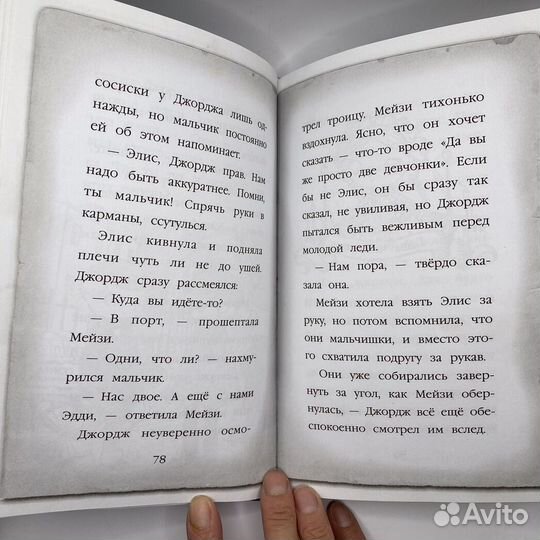 сосиски у Джорджа лишь од-
нажды, но мальчик постоянно
ей об этом напоминает.
— Элис, Джордж прав. Нам
надо быть аккуратнее. Помни,
ты мальчик! Спрячь руки в
карманы, ссутулься.
Элис кивнула и подняла
плечи чуть ли не до ушей.
Джордж сразу рассмеялся:
— Куда вы идёте-то?
— В порт, — прошептала
Мейзи.
— Одни, что ли? — нахму-
рился мальчик.
— Нас двое. А ещё с нами
Эдди, — ответила Мейзи.
Джордж неуверенно осмо-
78
трел троицу. Мейзи тихонько
вздохнула. Ясно, что он хочет
сказать — что-то вроде «Да вы
же просто две девчонки». Если
бы не Элис, он бы сразу так
сказал, не увиливая, но Джордж
пытался быть вежливым перед
молодой леди.
— Нам пора, — твёрдо ска-
зала она.
Мейзи хотела взять Элис за
руку, но потом вспомнила, что
они мальчишки, и вместо это-
го схватила подругу за рукав.
Они уже собирались завер-
нуть за угол, как Мейзи обер-
нулась, — Джордж всё ещё обе-
спокоенно смотрел им вслед.
Avito